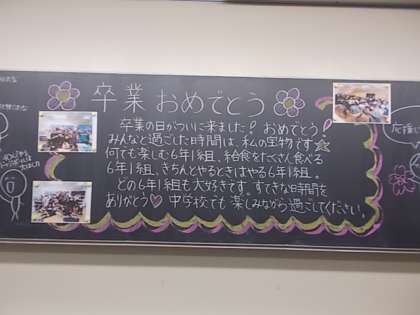 卒業おめでとう
卒業の日がついに来ました！おめでとう！
みんなと過ごした時間は、私の宝物です☆
何でも楽しむ6年1組、給食をたくさん食べる
6年1組、きちんとやるときはやる6年1組。
どの6年1組も大好きです。すてきな時間を
ありがとう♡中学校でも楽しみながら過ごしてください。